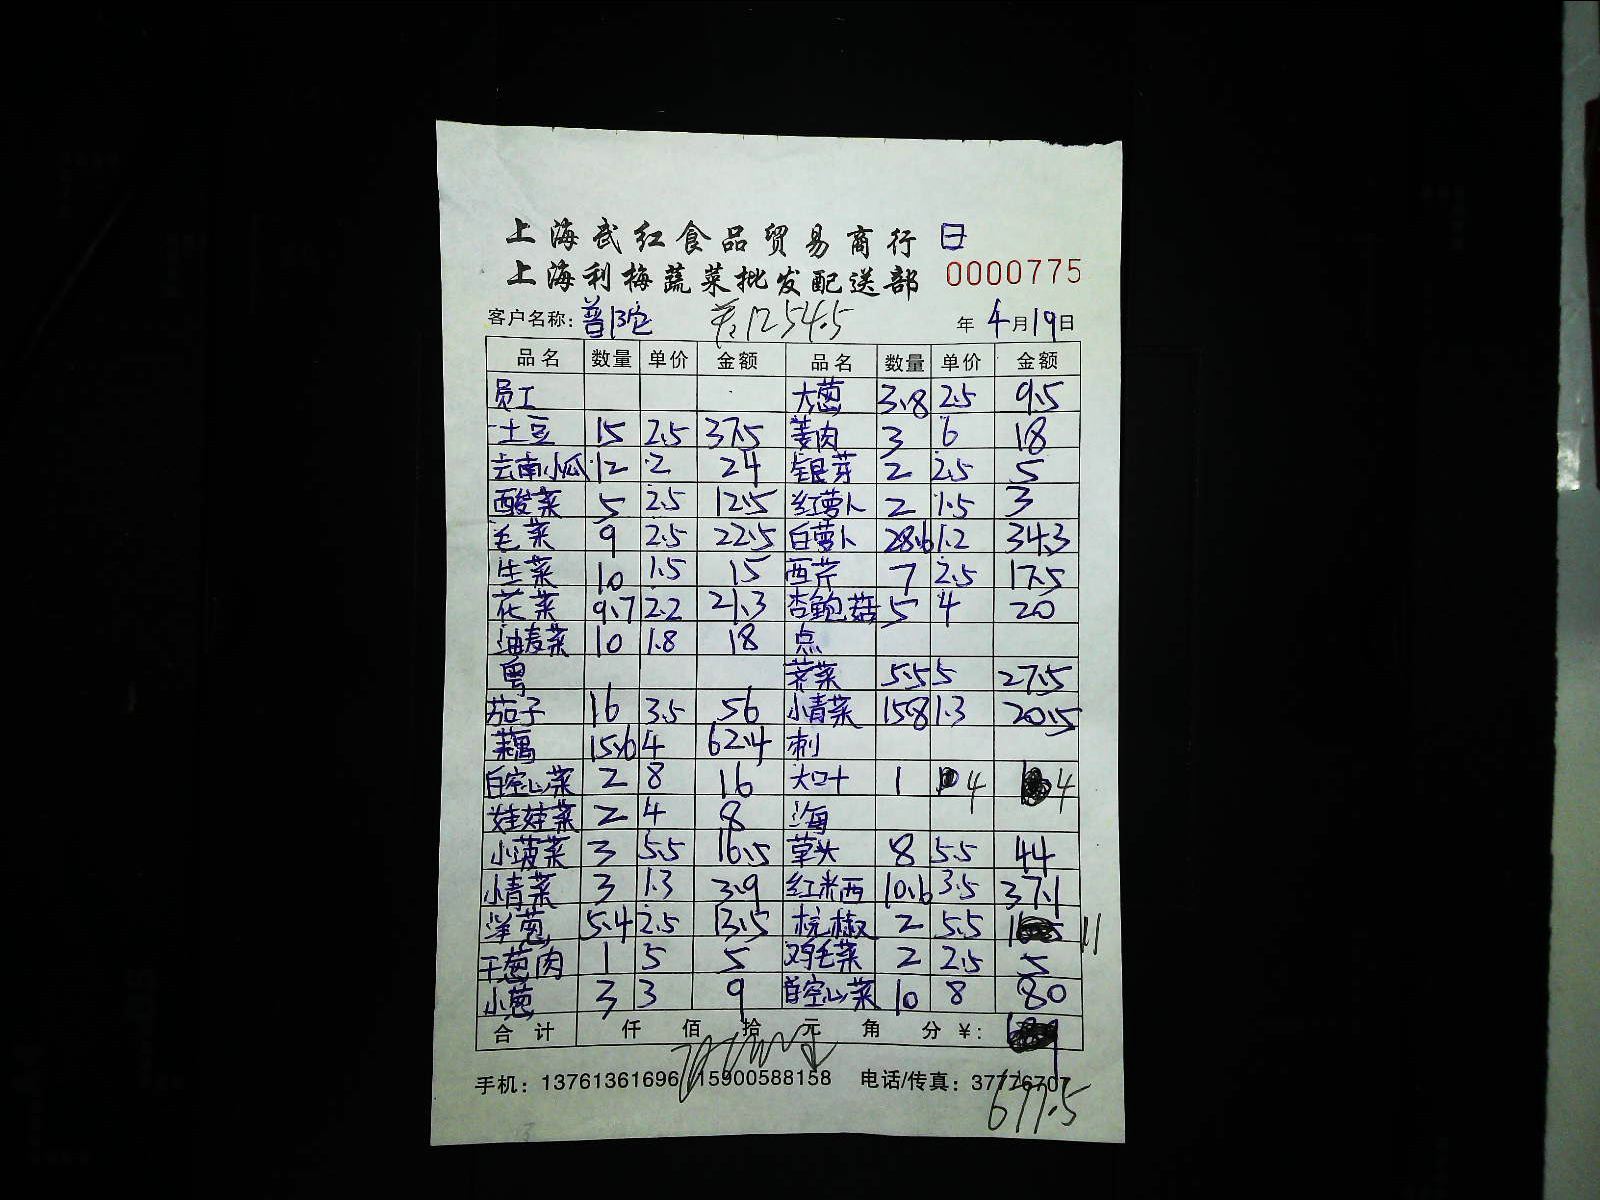 上海武红食品贸易商行 日
上海利梅蔬菜批发配送部 0000775
客户名称: 普陀 1254.5 年 4月19日
品名 数量 单价 金额 品名 数量 单价 金额
员工 大葱 3.8 2.5 9.5
土豆 15 2.5 37.5 姜肉 3 6 18
云南小瓜 12 2 24 银芽 2 2.5 5
酸菜 5 2.5 12.5 红萝卜 2 1.5 3
毛菜 9 2.5 22.5 白萝卜 28.6 1.2 34.3
生菜 10 1.5 15 西芹 7 2.5 17.5
花菜 9.7 2.2 21.3 杏鲍菇 5 4 20
油麦菜 10 1.8 18 点
粤 荠菜 5.5 5 27.5
茄子 16 3.5 56 小青菜 15.8 1.3 20.5
莲藕 15.6 4 62.4 刺
白空心菜 2 8 16 大叶 1 4 4
娃娃菜 2 4 8 海
小菠菜 3 5.5 16.5 草头 8 5.5 44
小青菜 3 1.3 3.9 红米西 10.6 3.5 37.1
洋葱 5.4 2.5 13.5 杭椒 2 5.5 11
干葱肉 1 5 5 鸡毛菜 2 2.5 5
小葱 3 3 9 白空心菜 10 8 80
合计 仟 佰 拾 元 角 分 ¥:
手机: 13761361696 15900588158 电话/传真: 37776707
677.5